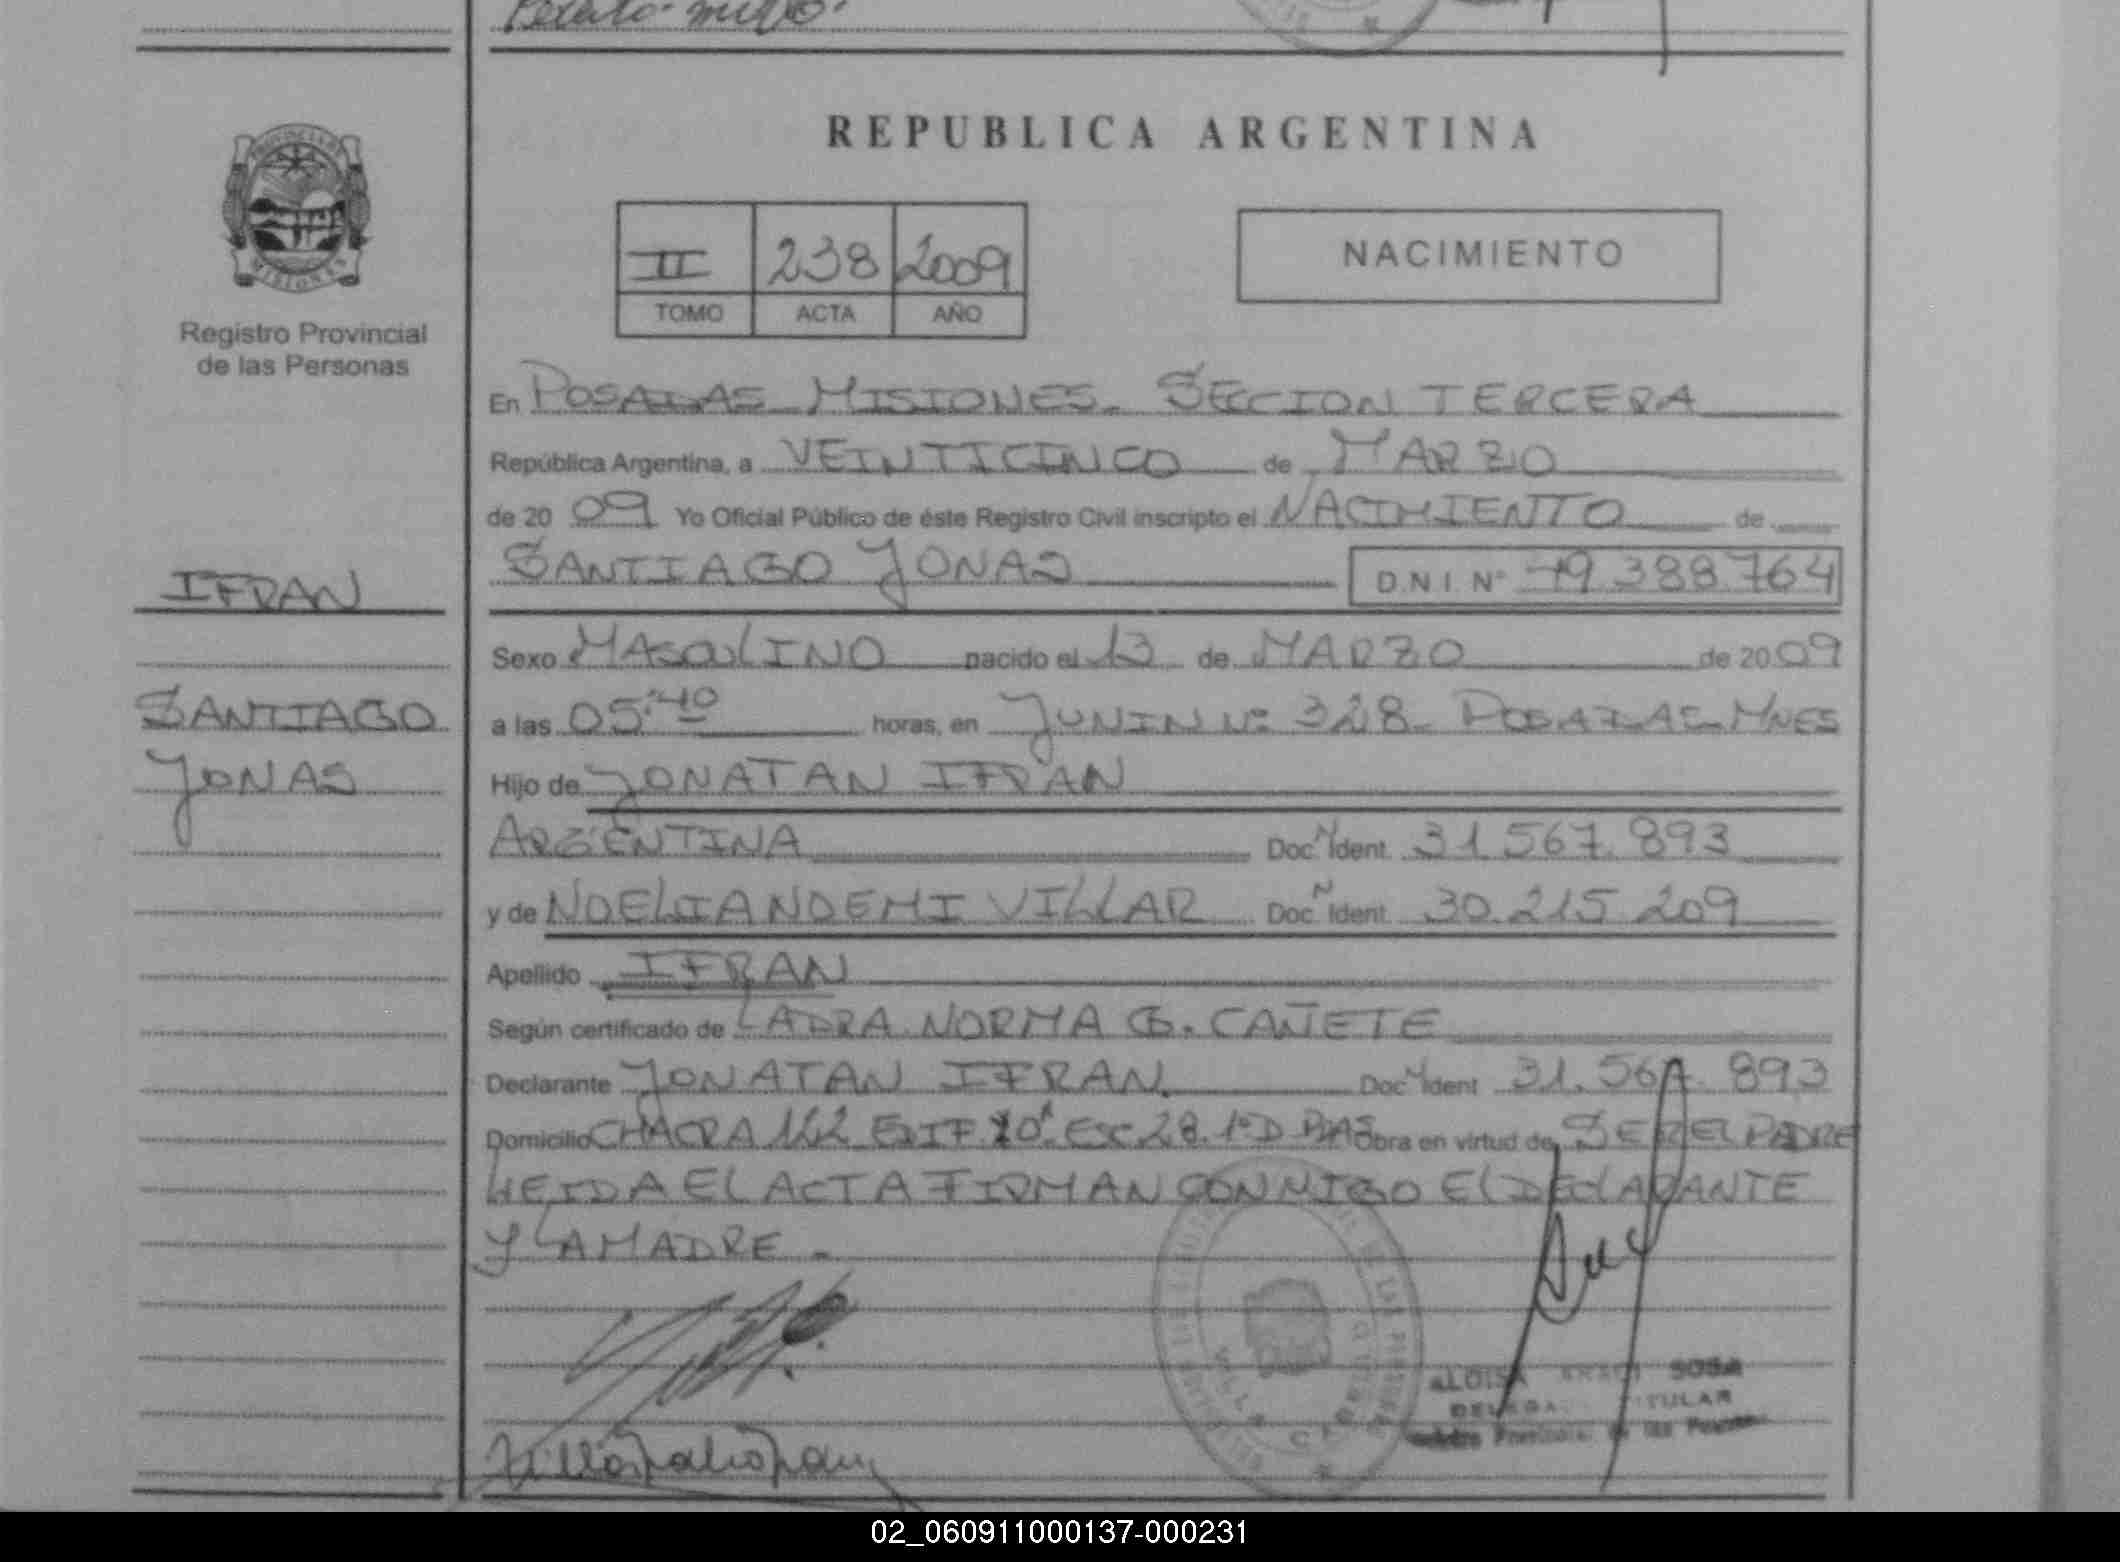 REPUBLICA ARGENTINA
PROVINCIA DE
MISIONES
Registro Provincial
de las Personas
II 238 2009
TOMO ACTA AÑO
NACIMIENTO
En POSADAS MISIONES. SECCION TERCERA
República Argentina, a VEINTICINCO de MARZO
de 20 09 Yo Oficial Público de éste Registro Civil inscripto el NACIMIENTO de
IFRAN
SANTIAGO JONAS D.N.I. Nº 49.388.764
Sexo MASCULINO nacido el 13 de MARZO de 20 09
SANTIAGO
JONAS
a las 05:40 horas, en JUNIN Nº 328 POSADAS MNES
Hijo de JONATAN IFRAN
ARGENTINA Doc. Ident. 31.567.893
y de NOELIA NOEMI VILLAR Doc. Ident. 30.215.209
Apellido IFRAN
Según certificado de LA DRA NORMA G. CAÑETE
Declarante JONATAN IFRAN. Doc. Ident. 31.567.893
Domicilio CHACRA 122 EDIF 20 ESC 28 1º D PDAS obra en virtud de SER EL PADRE
LEIDA EL ACTA FIRMAN CONMIGO EL DECLARANTE
Y LA MADRE.
SOSA
02_060911000137-000231